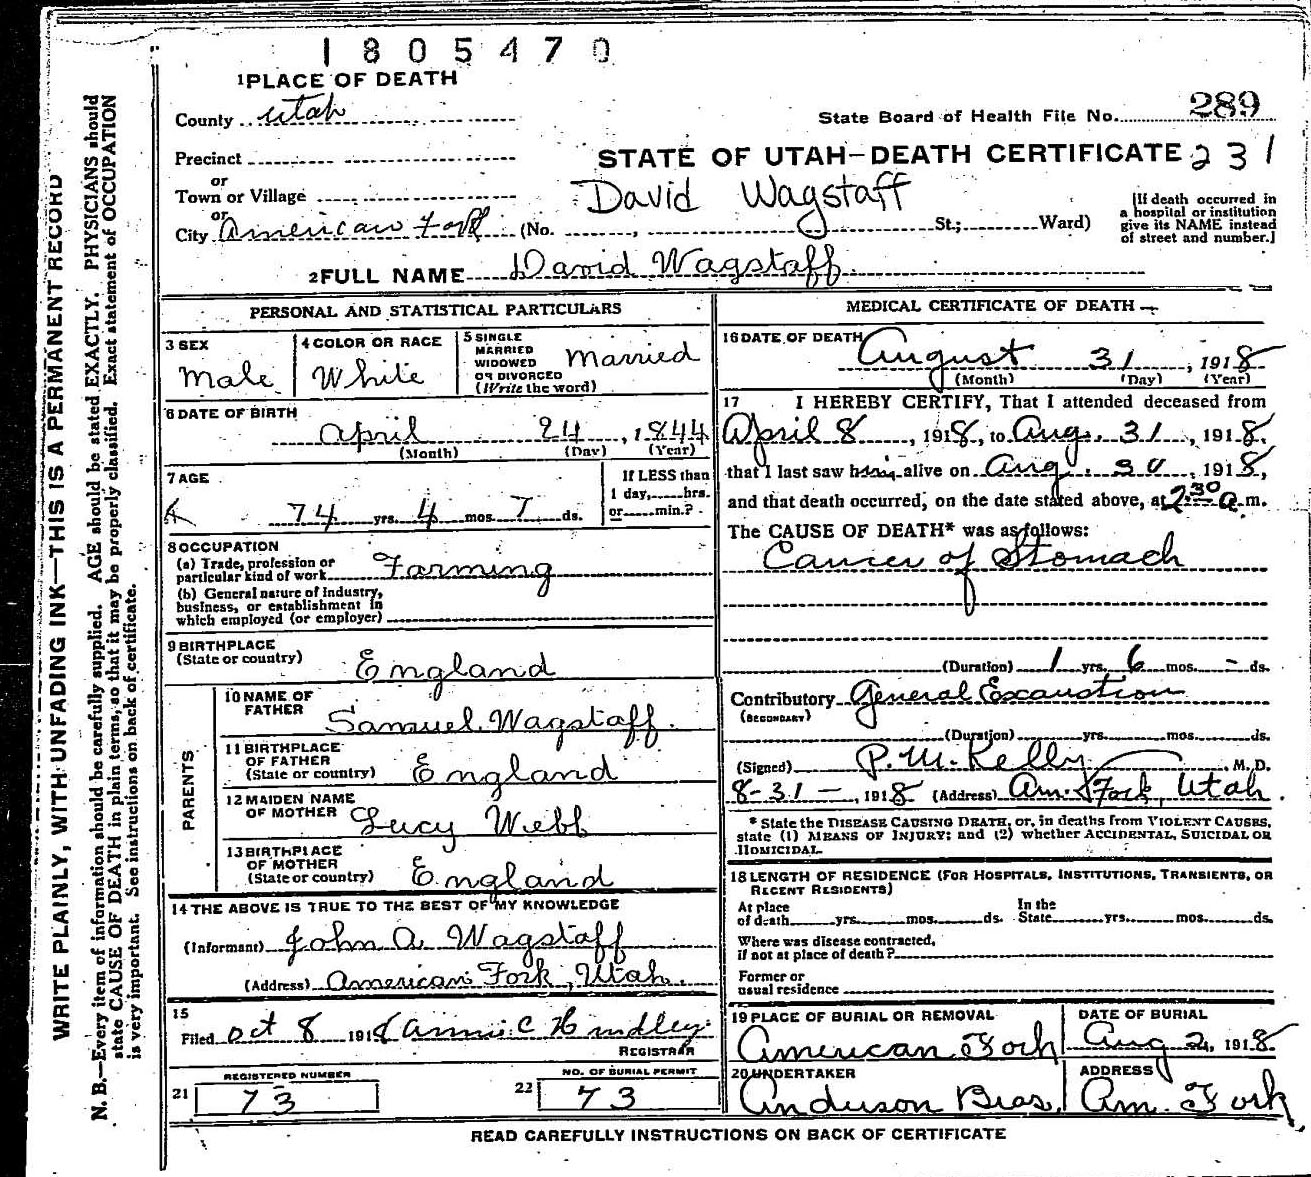 1805470
1 PLACE OF DEATH
County Utah
State Board of Health File No. 289
Precinct
STATE OF UTAH—DEATH CERTIFICATE 231
or
Town or Village
David Wagstaff
or
City American Fork (No. , St.; Ward)
[If death occurred in
a hospital or institution
give its NAME instead
of street and number.]
2 FULL NAME David Wagstaff
PERSONAL AND STATISTICAL PARTICULARS
3 SEX
Male
4 COLOR OR RACE
White
5 SINGLE
MARRIED
WIDOWED
OR DIVORCED
(Write the word)
Married
6 DATE OF BIRTH
April 24, 1844
(Month) (Day) (Year)
7 AGE
74 yrs. 4 mos. 7 ds.
If LESS than
1 day, hrs.
or min.?
8 OCCUPATION
(a) Trade, profession or
particular kind of work Farming
(b) General nature of industry,
business, or establishment in
which employed (or employer)
9 BIRTHPLACE
(State or country) England
PARENTS
10 NAME OF
FATHER Samuel Wagstaff.
11 BIRTHPLACE
OF FATHER
(State or country) England
12 MAIDEN NAME
OF MOTHER Lucy Webb
13 BIRTHPLACE
OF MOTHER
(State or country) England
14 THE ABOVE IS TRUE TO THE BEST OF MY KNOWLEDGE
(Informant) John A. Wagstaff
(Address) American Fork, Utah.
15
Filed Oct 8 1918 Annie C Hindley
REGISTRAR
REGISTERED NUMBER
21 73
NO. OF BURIAL PERMIT
22 73
MEDICAL CERTIFICATE OF DEATH
16 DATE OF DEATH
August 31, 1918
(Month) (Day) (Year)
17 I HEREBY CERTIFY, That I attended deceased from
April 8, 1918, to Aug. 31, 1918.
that I last saw him alive on Aug. 30, 1918,
and that death occurred, on the date stated above, at 2:30 a.m.
The CAUSE OF DEATH* was as follows:
Cancer of Stomach
(Duration) 1 yrs. 6 mos. - ds.
Contributory General Excaustion
(SECONDARY)
(Duration) yrs. mos. ds.
(Signed) P. M. Kelly M. D.
8-31-, 1918 (Address) Am. Fork, Utah.
* State the DISEASE CAUSING DEATH, or, in deaths from VIOLENT CAUSES,
state (1) MEANS OF INJURY; and (2) whether ACCIDENTAL, SUICIDAL OR
HOMICIDAL.
18 LENGTH OF RESIDENCE (FOR HOSPITALS, INSTITUTIONS, TRANSIENTS, OR
RECENT RESIDENTS)
At place
of death yrs. mos. ds.
In the
State yrs. mos. ds.
Where was disease contracted,
if not at place of death?
Former or
usual residence
19 PLACE OF BURIAL OR REMOVAL
American Fork
DATE OF BURIAL
Aug 2, 1918
20 UNDERTAKER
Anderson Bros.
ADDRESS
Am. Fork
READ CAREFULLY INSTRUCTIONS ON BACK OF CERTIFICATE
WRITE PLAINLY, WITH UNFADING INK—THIS IS A PERMANENT RECORD
N. B.—Every item of information should be carefully supplied. AGE should be stated EXACTLY. PHYSICIANS should
state CAUSE OF DEATH in plain terms, so that it may be properly classified. Exact statement of OCCUPATION
is very important. See instructions on back of certificate.